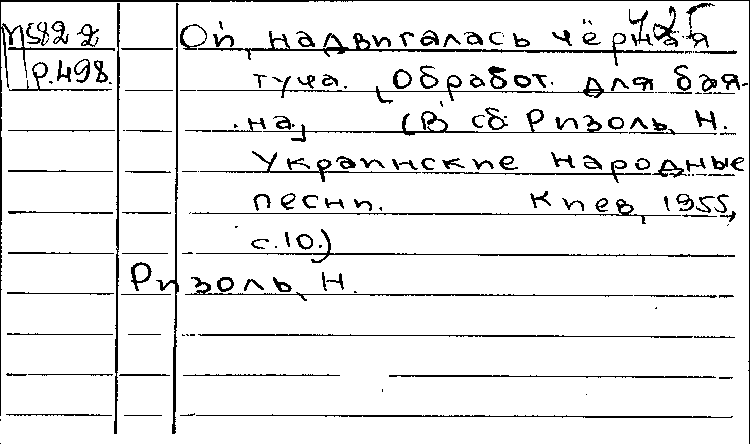 М582 2
р.498.
725
Ой, надвигалась чёрная
туча. [Обработ. для бая-
на] (В сб. Ризоль, Н.
Украинские народные
песни. Киев, 1955,
с.10.)
Ризоль, Н.